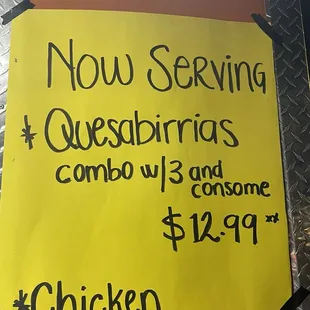 Now Serving
* Quesabirrias
combo w/3 and
consome
$12.99 **
*Chicken